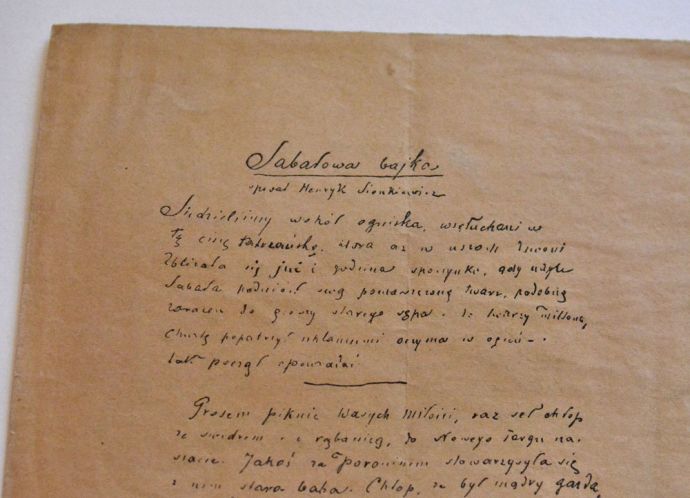 Sabałowa bajka
spisał Henryk Sienkiewicz
Siedzieliśmy wokół ogniska, wsłuchani w
tę ciszę tatrzańską, która aż w uszach dzwoni
Zbliżała się już i godzina spoczynku, gdy nagle
Sabała podniósł swą pomarszczoną twarz, podobną
zarazem do głowy starego sępa i do twarzy Miltona,
chwilę popatrzył szklannemi oczyma w ogień
tak począł opowiadać
Prosem piknie Wasych Miłości, raz seł chłop
ze świdrem i z rąbanicą, do Nowego Targu na
służbę. Jakoś za Poroninem stowarzysyła się
z nim stara baba. Chłop, że był mądry gazda